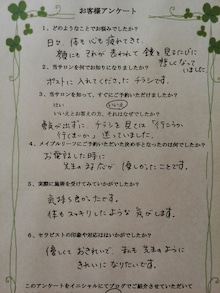 お客様アンケート
1、どのようなことでお悩みでしたか?
日々、体も心も疲れてきて
顔にもそれが表われて鏡を見るたびに
悲しくなっていました。
2、当サロンを何でお知りになりましたか?
ポストに入れてくださったチラシです。
3、当サロンを知って、すぐにご予約いただけましたか?
はい いいえ
いいえとお答えの方、それはなぜですか?
勇気が出ずに、チラシを見ては「行こうか、
行くまいか」迷っていました。
4、メイプルリーフにご予約いただいた決め手となったのは何でしたか?
お電話した時に
先生の対応が優しかったことです。
5、実際に施術を受けてみていかがでしたか?
気持ち良かったです。
体もスッキリしたような気がします。
6、セラピストの印象や対応はいかがでしたか?
優しくておきれいで、私も先生のように
きれいになりたいです。
このアンケートをイニシャルにてブログでご紹介させていただいて